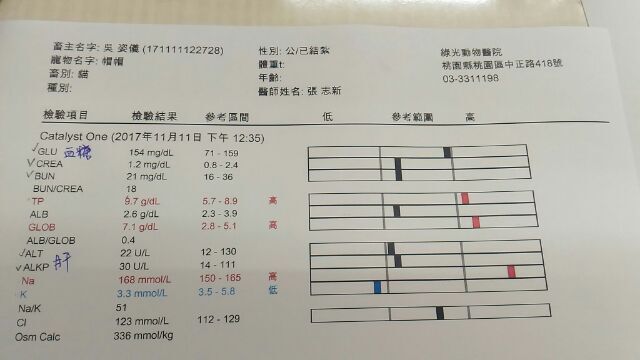 畜主名字: 吳 姿儀 (171111122728) 性別: 公/已結紮 綠光動物醫院
寵物名字: 帽帽 體重: 桃園縣桃園區中正路418號
畜別: 貓 年齡: 03-3311198
種別: 醫師姓名: 張 志新
檢驗項目 檢驗結果 參考區間 低 參考範圍 高
Catalyst One (2017年11月11日 下午 12:35)
✓GLU 血糖 154 mg/dL 71 - 159
✓CREA 1.2 mg/dL 0.8 - 2.4
✓BUN 21 mg/dL 16 - 36
BUN/CREA 18
TP 9.7 g/dL 5.7 - 8.9 高
ALB 2.6 g/dL 2.3 - 3.9
GLOB 7.1 g/dL 2.8 - 5.1 高
ALB/GLOB 0.4
✓ALT 22 U/L 12 - 130
✓ALKP 肝 30 U/L 14 - 111
Na 168 mmol/L 150 - 165 高
K 3.3 mmol/L 3.5 - 5.8 低
Na/K 51
Cl 123 mmol/L 112 - 129
Osm Calc 336 mmol/kg